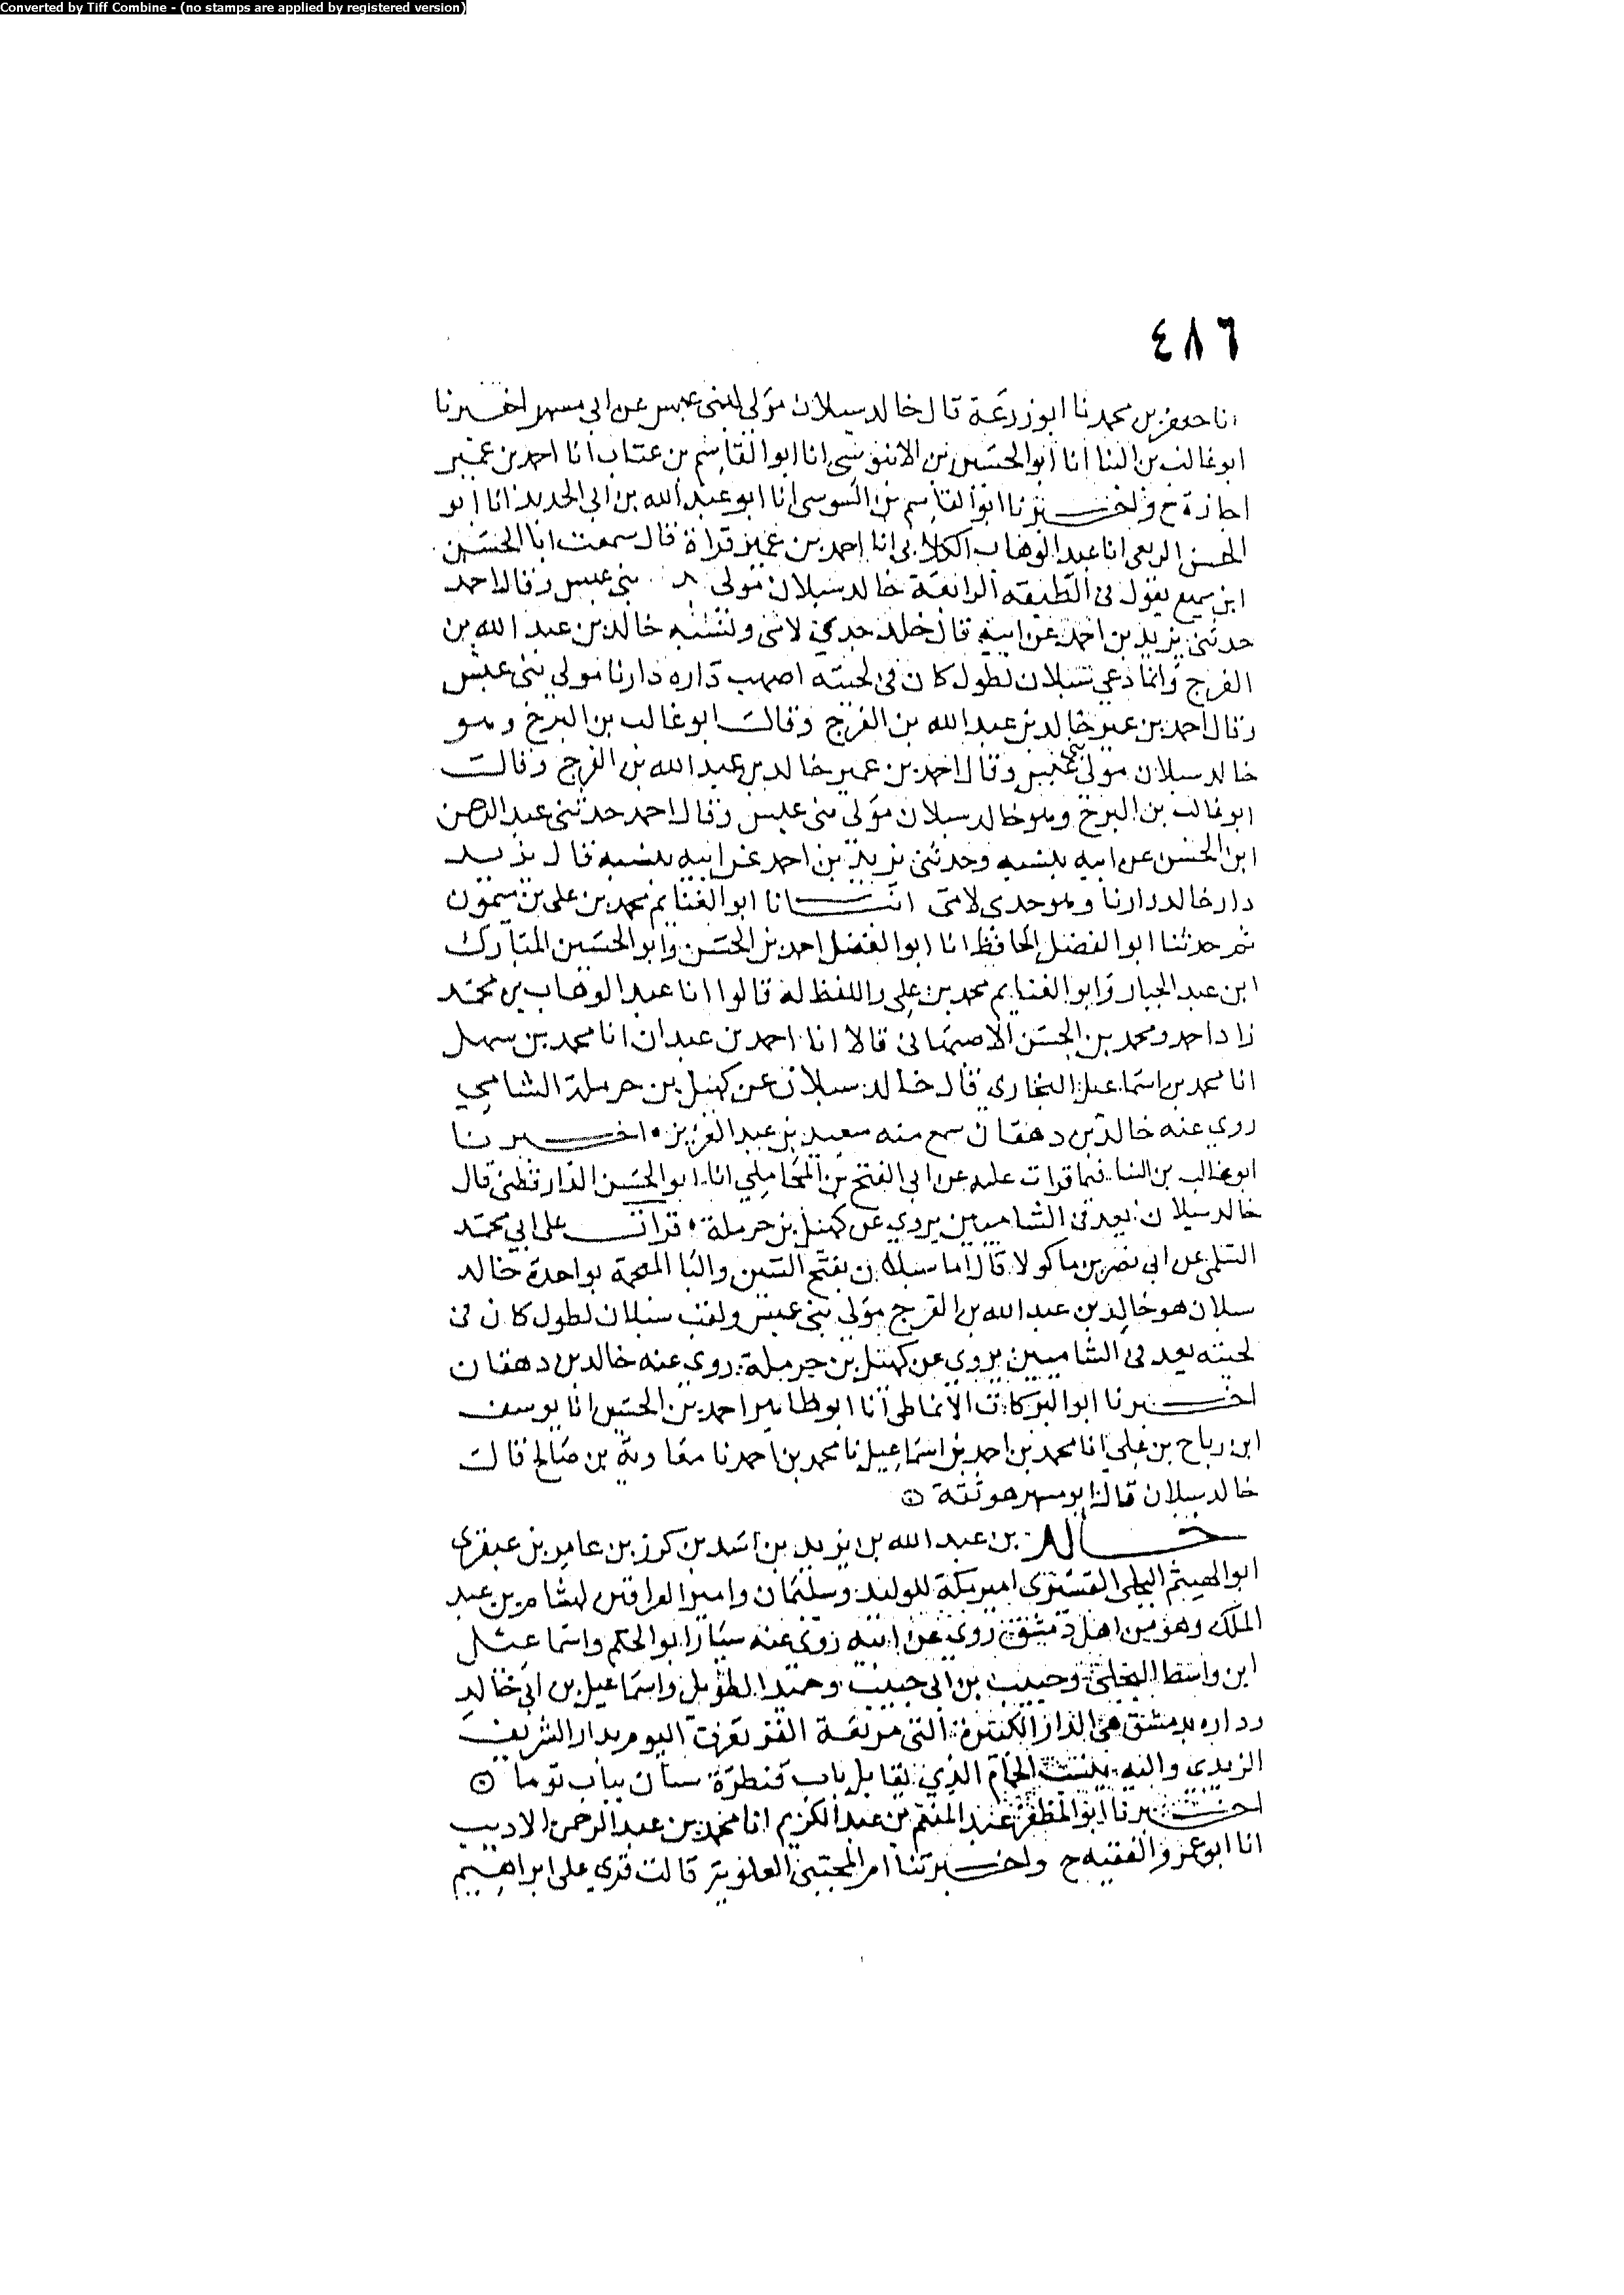 Converted by Tiff Combine - (no stamps are applied by registered version)
٤٨٦
انا جعفر بن محمد نا ابو زرعة قال خالد سبلان مولى لبنى عبس عن ابى مسهر اخبرنا
ابو غالب بن البنا انا ابو الحسين بن الابنوسى انا ابو القاسم بن عتاب انا احمد بن عمير
اجازة ح واخبرنا ابو القاسم بن السوسى انا ابو عبد الله بن ابى الحديد انا ابو
الحسن الربعى انا عبد الوهاب الكلابى انا احمد بن عمير قراة قال سمعت ابا الحسين
ابن سميع يقول فى الطبقة الرابعة خالد سبلان مولى بنى عبس وقال احمد
حدثنى يزيد بن احمد عن ابيه قال خلد جدى لامى ونسبه خالد بن عبد الله بن
الفرج وانما دعي سبلان لطول كان فى لحيته اصهب داره دارنا مولى بنى عبس
وقال احمد بن عمير خالد بن عبد الله بن الفرج وقالت ابو غالب بن البرخ وهو
خالد سبلان مولى بنى عبس وقال احمد بن عمير خالد بن عبد الله بن الفرج وقالت
ابو غالب بن البرخ وهو خالد سبلان مولى بنى عبس وقال احمد حدثنى عبد الرحمن
ابن الحسن عن ابيه بنسبه وحدثنى يزيد بن احمد عن ابيه بنسبه قال يزيد
دار خالد دارنا وهو جدى لامى انبانا ابو الغنايم محمد بن على بن ميمون
ثم حدثنا ابو الفضل الحافظ انا ابو الفضل احمد بن الحسن وابو الحسين المبارك
ابن عبد الجبار وابو الغنايم محمد بن على واللفظ له قالوا انا عبد الوهاب بن محمد
زاد احمد ومحمد بن الحسن الاصبهانى قالا انا احمد بن عبدان انا محمد بن سهل
انا محمد بن اسماعيل البخارى قال خالد سبلان عن كهيل بن حرملة الشامي
روى عنه خالد بن دهقان سمع منه سعيد بن عبد العزيز ٥ اخبرنا
ابو غالب بن البنا فيما قرات عليه عن ابى الفتح بن المحاملي انا ابو الحسن الدارقطنى قال
خالد سبلان يعد فى الشاميين يروي عن كهيل بن حرملة ٥ قرات على ابي محمد
السلمى عن ابى نصر بن ماكولا قال اما سبلان بفتح السين والبا المعجمة بواحدة خالد
سبلان هو خالد بن عبد الله بن الفرج مولى بنى عبس ولقب سبلان لطول كان فى
لحيته يعد فى الشاميين يروي عن كهيل بن حرملة روى عنه خالد بن دهقان
اخبرنا ابو البركات الانماطى انا ابو طاهر احمد بن الحسن انا يوسف
ابن رباح بن على انا محمد بن احمد بن اسماعيل نا محمد بن احمد نا معاوية بن صالح قالت
خالد سبلان قال ابو مسهر هو ثقة
خالد بن عبد الله بن يزيد بن اسد بن كرز بن عامر بن عبقرى
ابو الهيثم البجلى القسرى امير مكة للوليد وسليمان وامير العراقين لهشام بن عبد
الملك وهو من اهل دمشق روى عن ابيه روى عنه سيار ابو الحكم واسماعيل
ابن واسط البجلى وحبيب بن ابى حبيب وحميد الطويل واسماعيل بن ابى خالد
وداره بدمشق هى الدار الكبيرة التى مربعة القز تعرف اليوم بدار الشريف
الزيدى واليه ينسب الحمام الذي يقابل باب قنطرة سنان بباب توما
اخبرنا ابو المظفر عبد المنعم بن عبد الكريم انا محمد بن عبد الرحمن الاديب
انا ابو عمرو الفقيه ح واخبرتنا ام المجتبى العلوية قالت قرى على ابراهيم